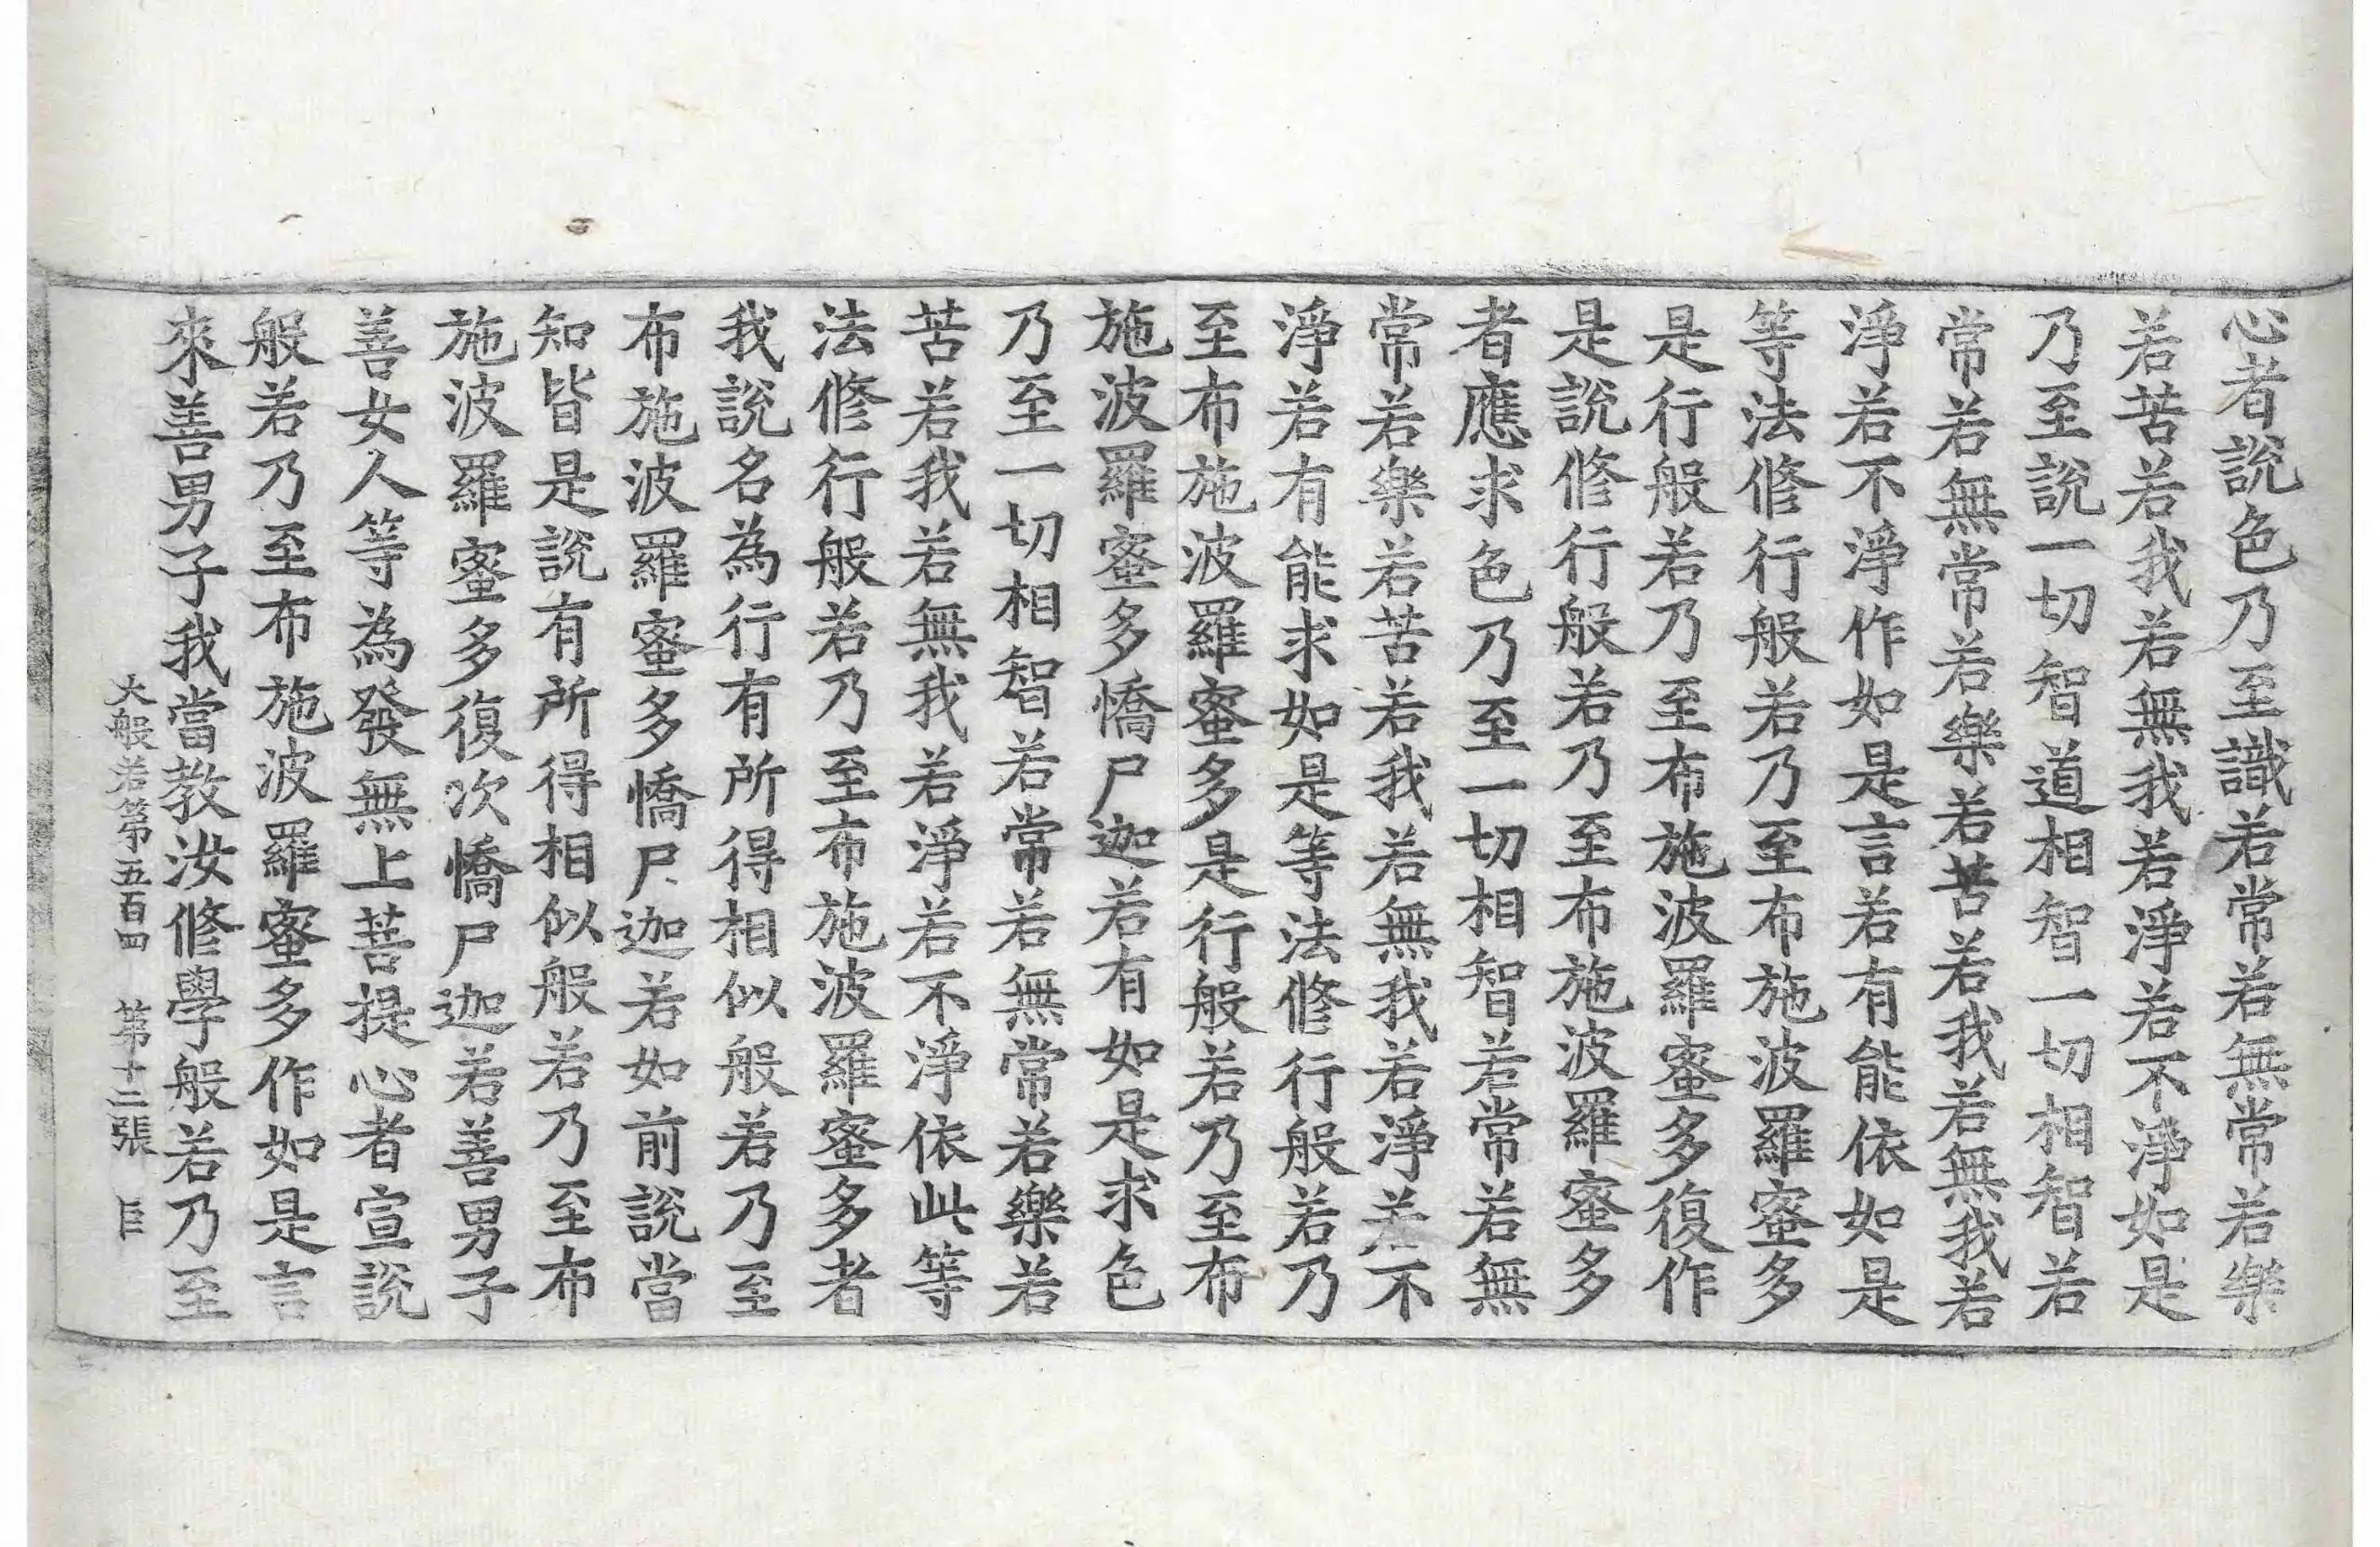 心者說色乃至識若常若無常若樂
若苦若我若無我若淨若不淨如是
乃至說一切智道相智一切相智若
常若無常若樂若苦若我若無我若
淨若不淨作如是言若有能依如是
等法修行般若乃至布施波羅蜜多
是行般若乃至布施波羅蜜多復作
是說修行般若乃至布施波羅蜜多
者應求色乃至一切相智若常若無
常若樂若苦若我若無我若淨若不
淨若有能求如是等法修行般若乃
至布施波羅蜜多是行般若乃至布
施波羅蜜多憍尸迦若有如是求色
乃至一切相智若常若無常若樂若
苦若我若無我若淨若不淨依此等
法修行般若乃至布施波羅蜜多者
我說名為行有所得相似般若乃至
布施波羅蜜多憍尸迦若如前說當
知皆是說有所得相似般若乃至布
施波羅蜜多復次憍尸迦若善男子
善女人等為發無上菩提心者宣說
般若乃至布施波羅蜜多作如是言
來善男子我當教汝修學般若乃至
大般若第五百四 第十三張 臣